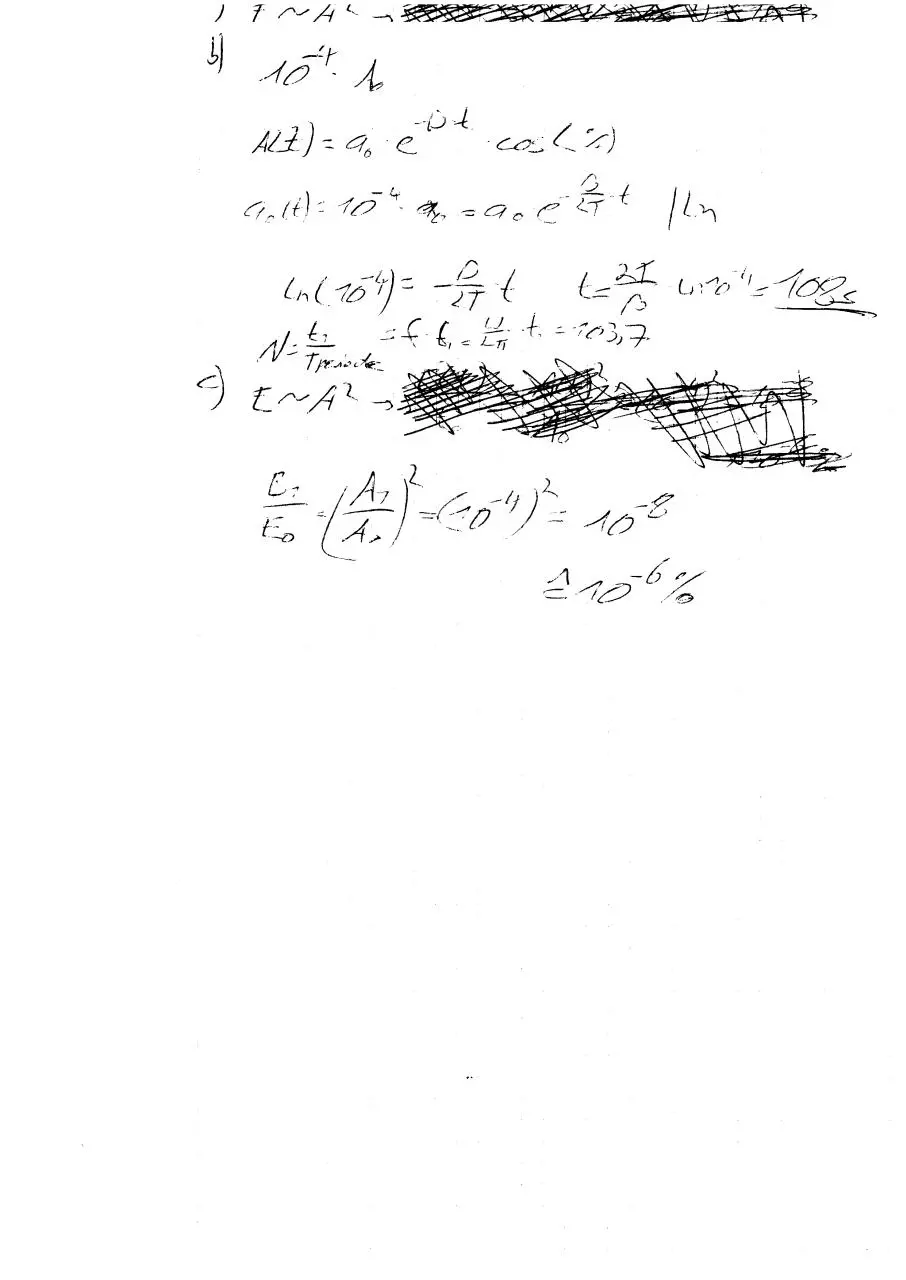 ) E ~ A² →
b) 10⁻⁴ · A₀
A(t) = a₀ · e^(-D·t) · cos(%)
a₀(t) = 10⁻⁴ · a₀ = a₀ e^(-β/2I · t) | Ln
Ln(10⁻⁴) = -β/2I t   t = 2I/β · Ln10⁻⁴ = 108s
N = t₁/Tperiode = f · t₁ = ω/2π · t₁ = 103,7
c) E ~ A² →
E₁/E₀ = (A₁/A₀)² = (10⁻⁴)² = 10⁻⁸
≙ 10⁻⁶ %